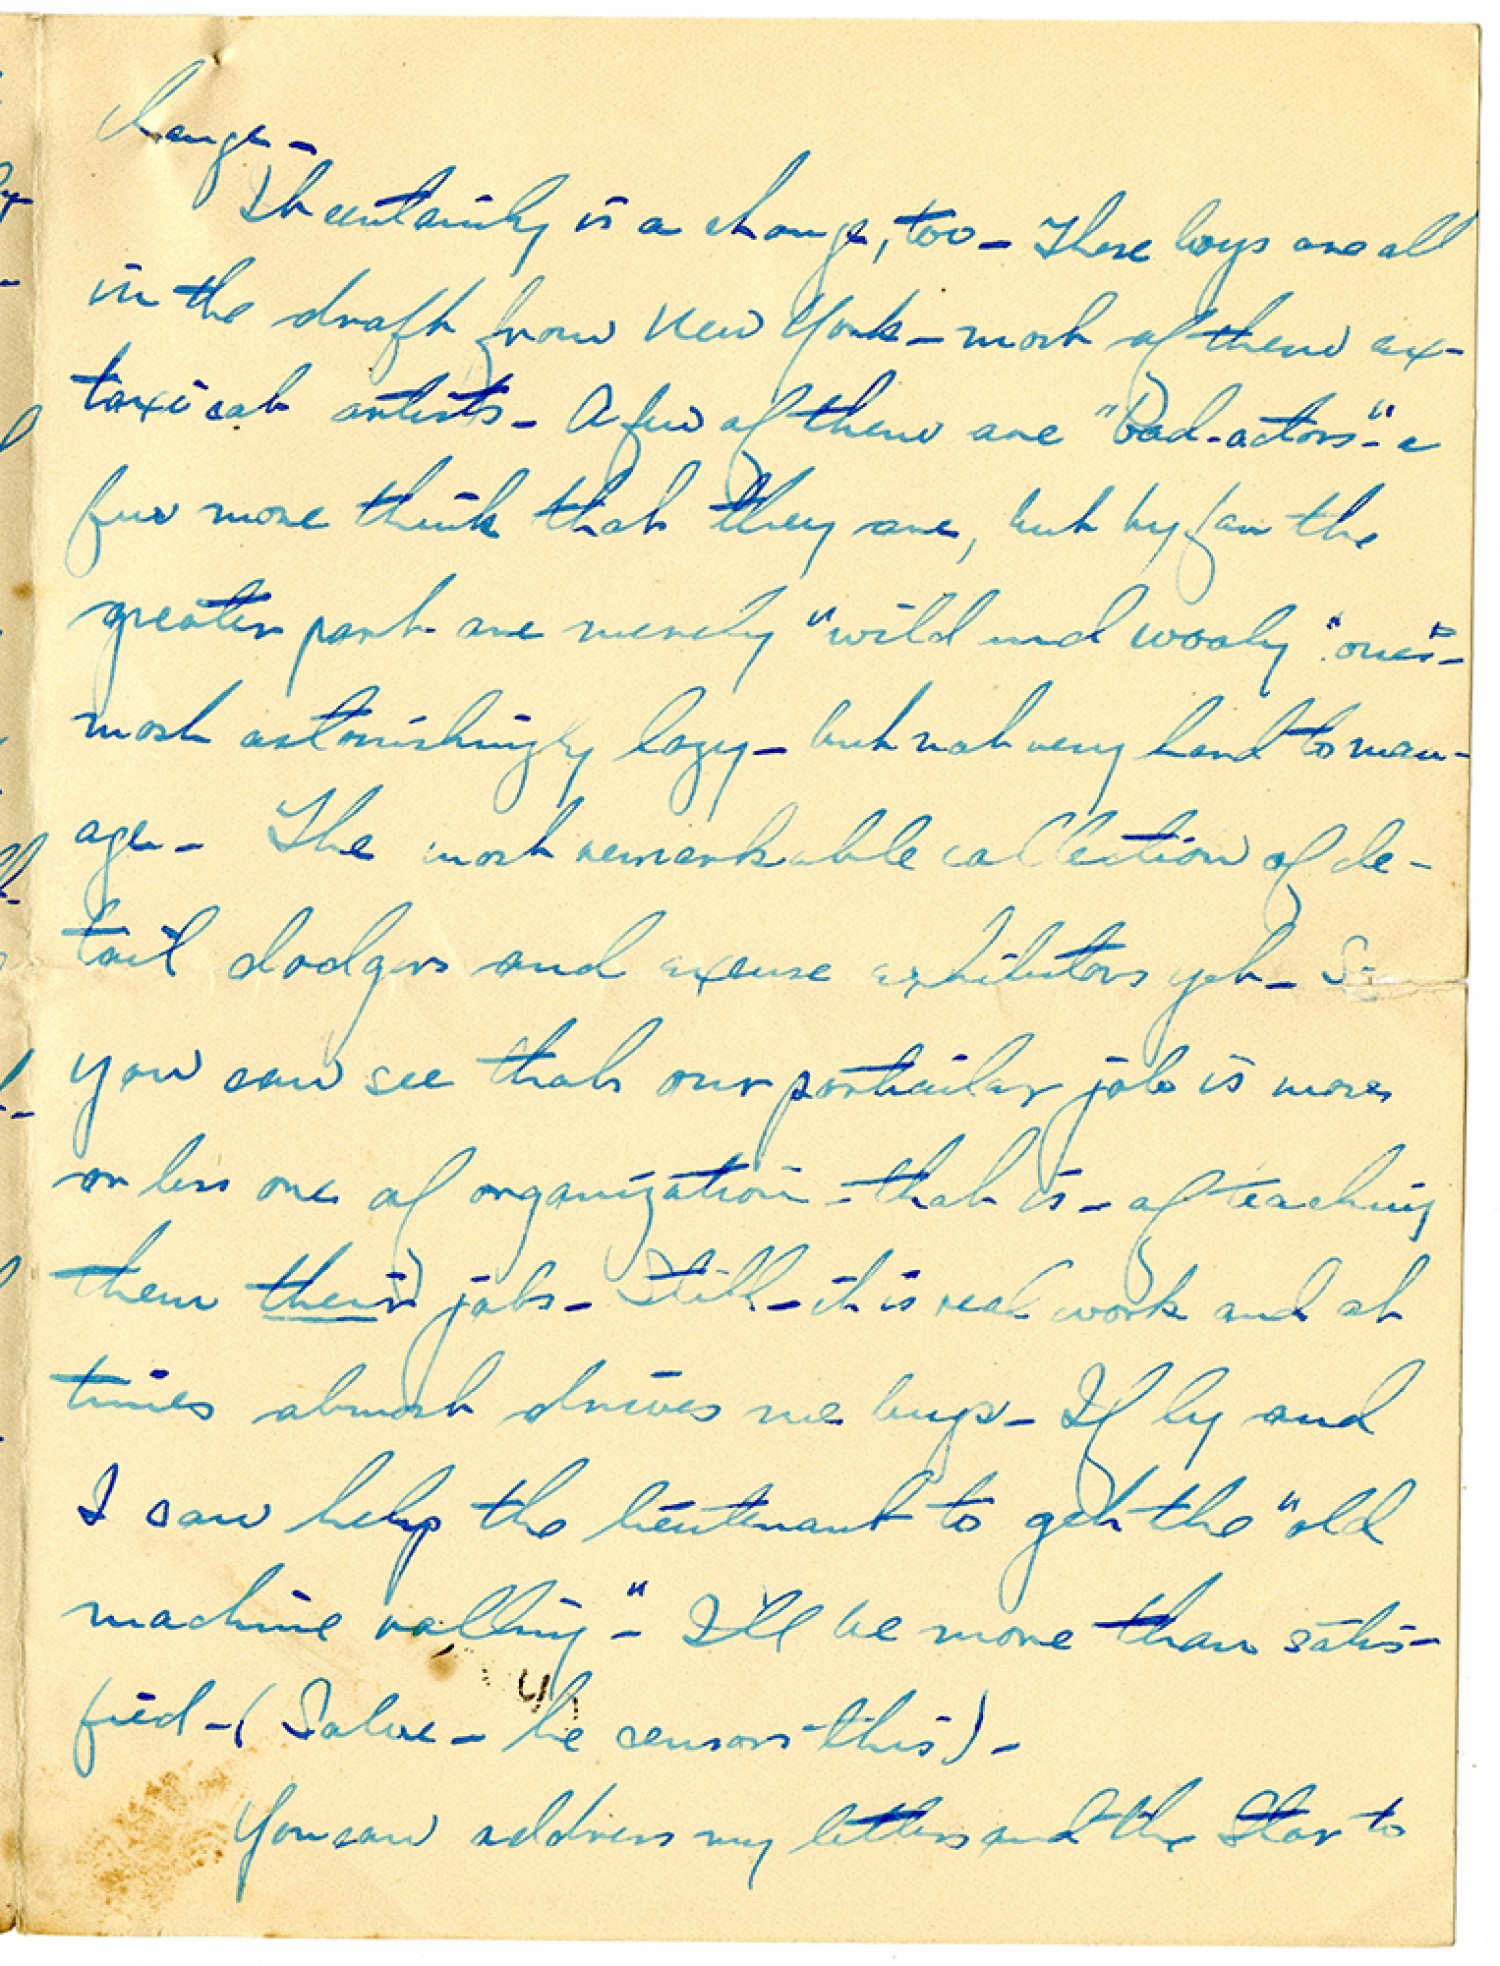 change –
It certainly is a change, too – These boys are all
in the draft from New York – most of them ex-
taxicab artists – A few of them are "bad-actors" – a
few more think that they are, but by far the
greater part are merely "wild and wooly" "ones" –
most astonishingly lazy – but not very hard to man-
age – The most remarkable collection of de-
tail dodgers and excuse exhibitors yet – So
you can see that our particular job is more
or less one of organization – that is – of teaching
them their jobs – Still – it is real work and at
times almost drives me bugs – If by and
I can help the lieutenant to get the "old
machine rolling" – I'll be more than satis-
fied – ( Salve – he censors this ) –
You can address my letters and the Star to